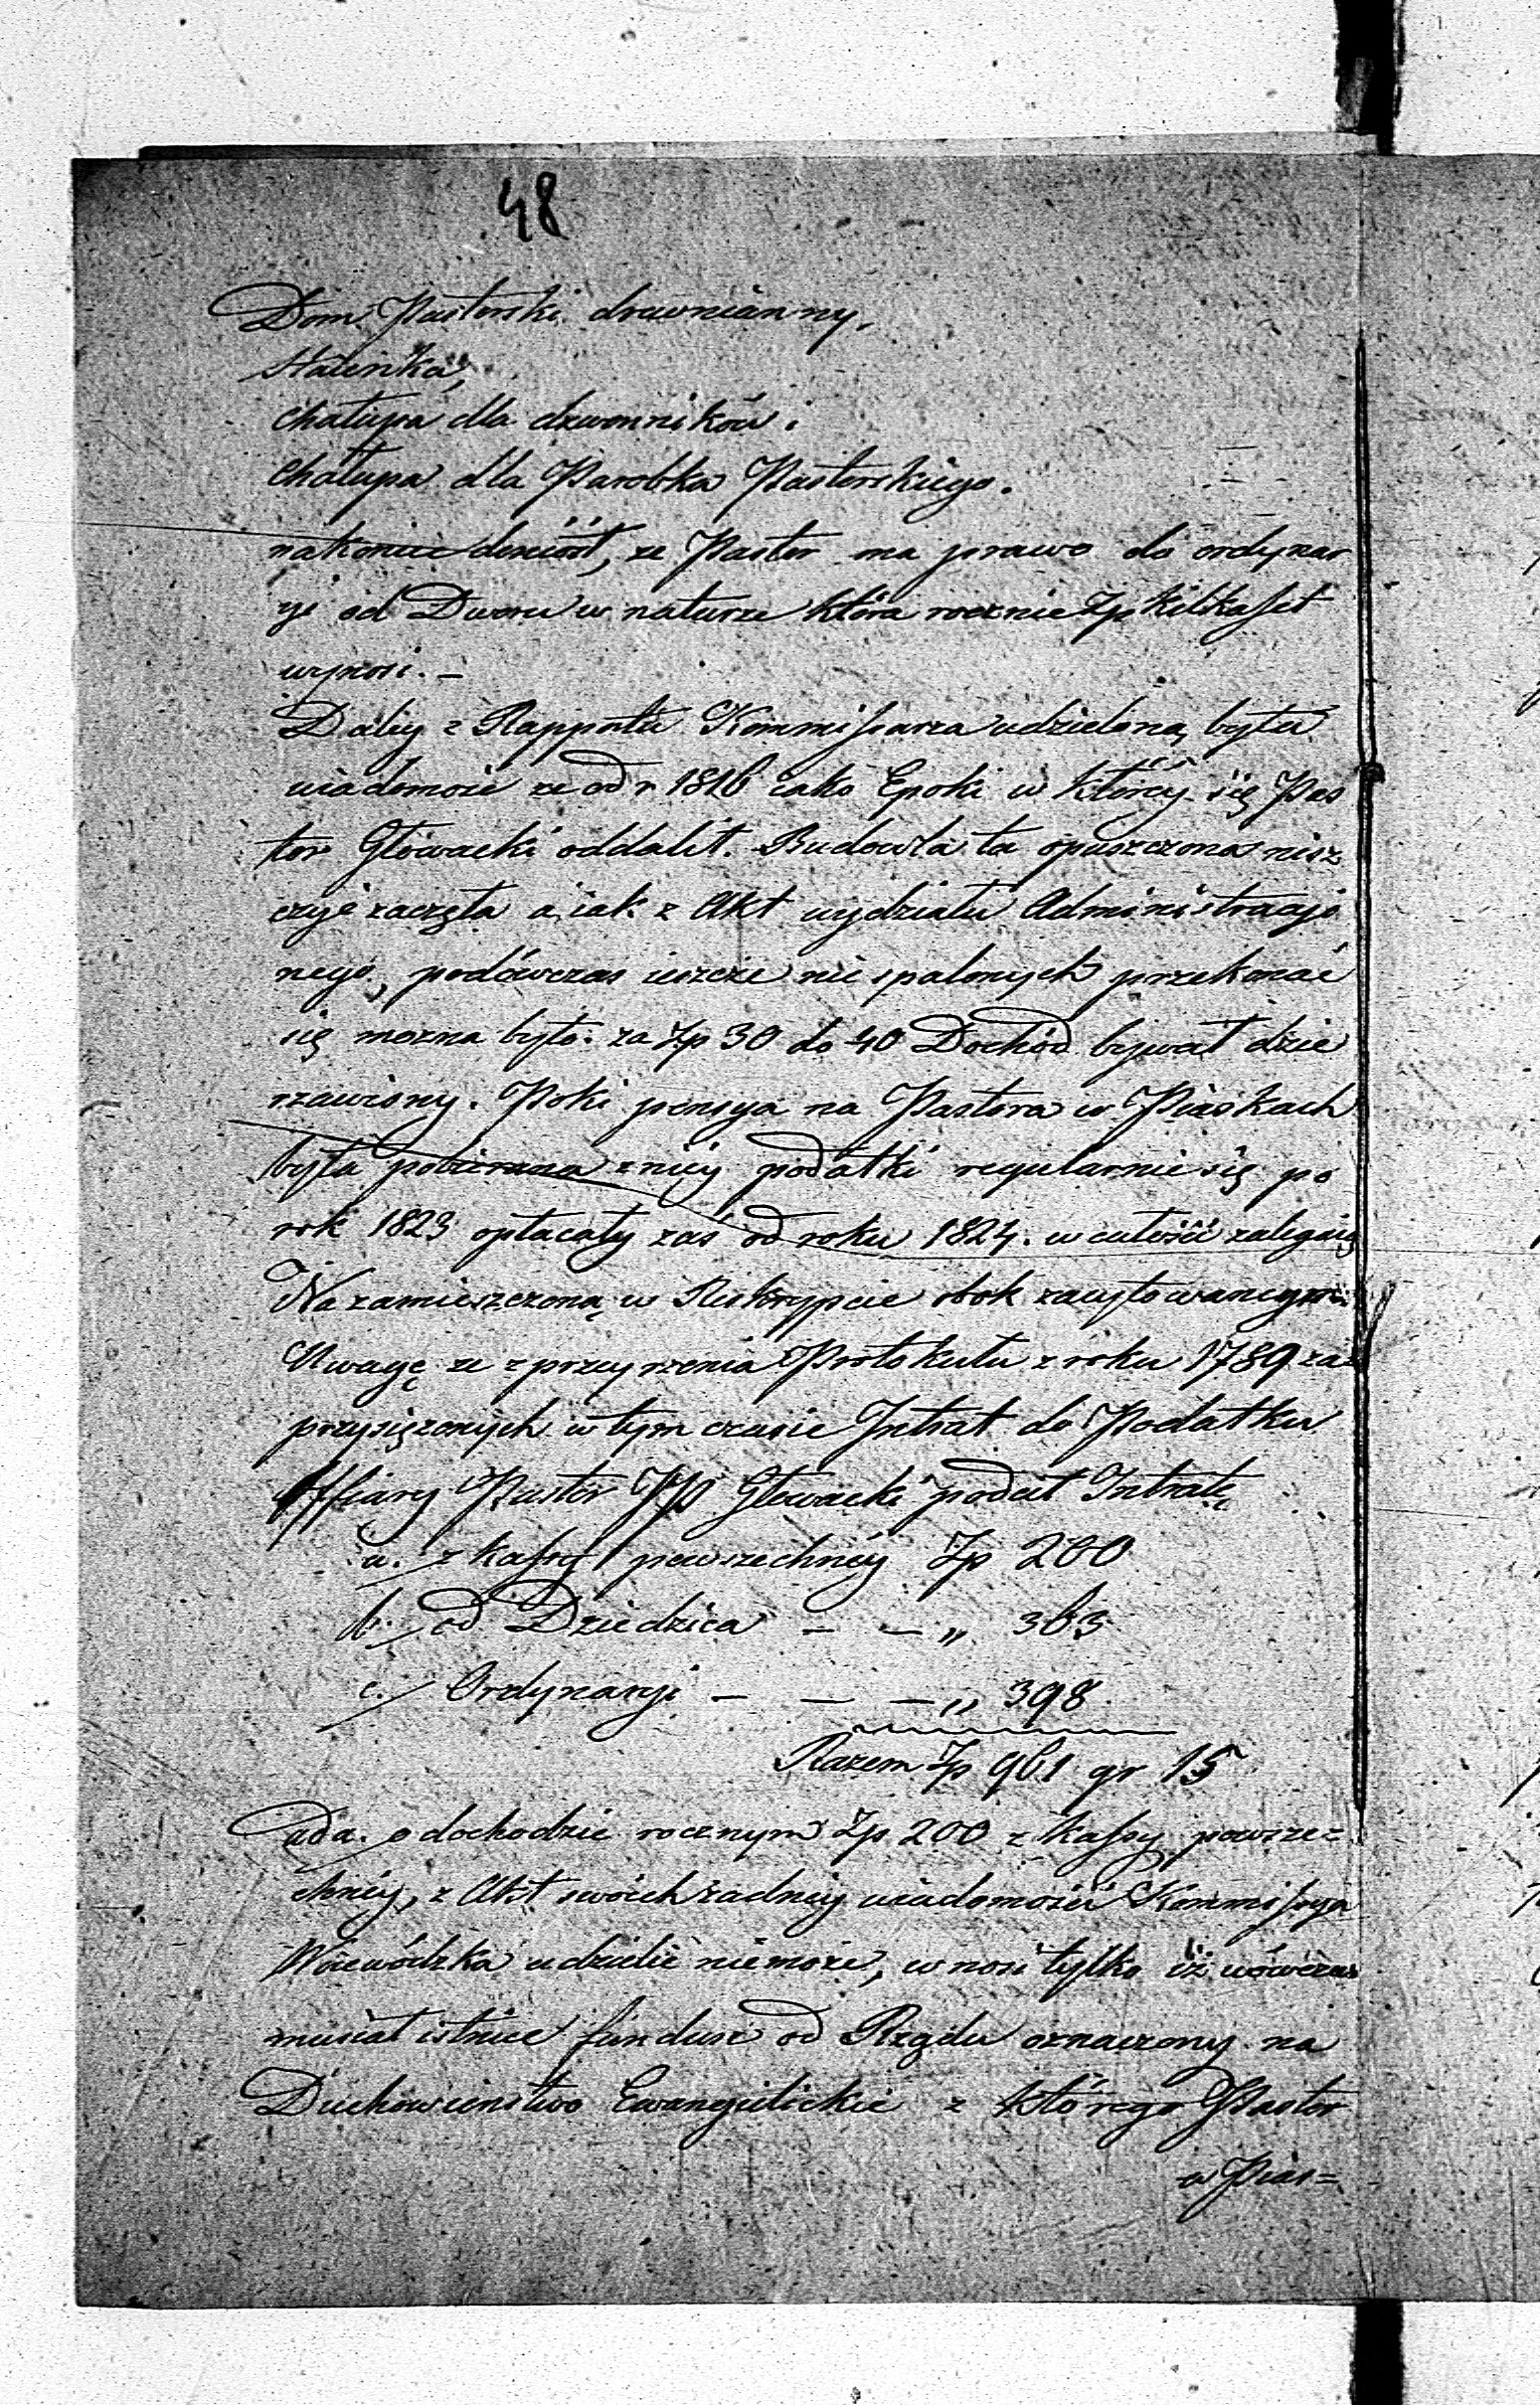 48
Dom Pastorski drewnianny,
Stalenka,
Chałupa dla dzwonników i
Chałupa dla Parobka Pastorskiego.
nakoniec doniósł, że Pastor ma prawo do ordynar
yi od Dworu w naturze która rocznie Zp kilkaset
wynosi. –
Daléy z Rapportu Kommissarza udzieloną była
wiadomość że od r 1816 iako Epoki w któréy się Pas
tor Głowacki oddalił. Budowla ta opuszczona nisz
czyć zaczęła a iak z Akt wydziału Administracyi
nego, podówczas ieszcze nie spalonych przekonać
się można było. za Zp 30 do 40 Dochód bywał dzie
rzawiony. Poki pensya na Pastora w Piaskach
była pobierana z niéy podatki regularnie się po
rok 1823 opłacały zaś od roku 1824. w całości zalegaią
Na zamieszczoną w Reskrypcie obok zacytowanym
Uwagę że z przeyrzenia Protokułu z roku 1789 za
przysięzonych w tym czasie Intrat do Podatku
Offiary Pastor JP Głowacki podał Intratę
a. z kassy powszechnéy Zp 200
b. od Dziedzica – – „ 363
c. Ordynaryi – – – „ 398
Razem Zp 961 gr 15
ad a. o dochodzie rocznym Zp 200 z Kassy powsze=
chnéy, z Akt swoich żadnéy wiadomości Kommissya
Woiewódzka udzielić nie może, wnosi tylko iż wówczas
musiał istnieć fundusz od Rządu oznaczony na
Duchowieństwo Ewangelickie z którego Pastor
w Pias=